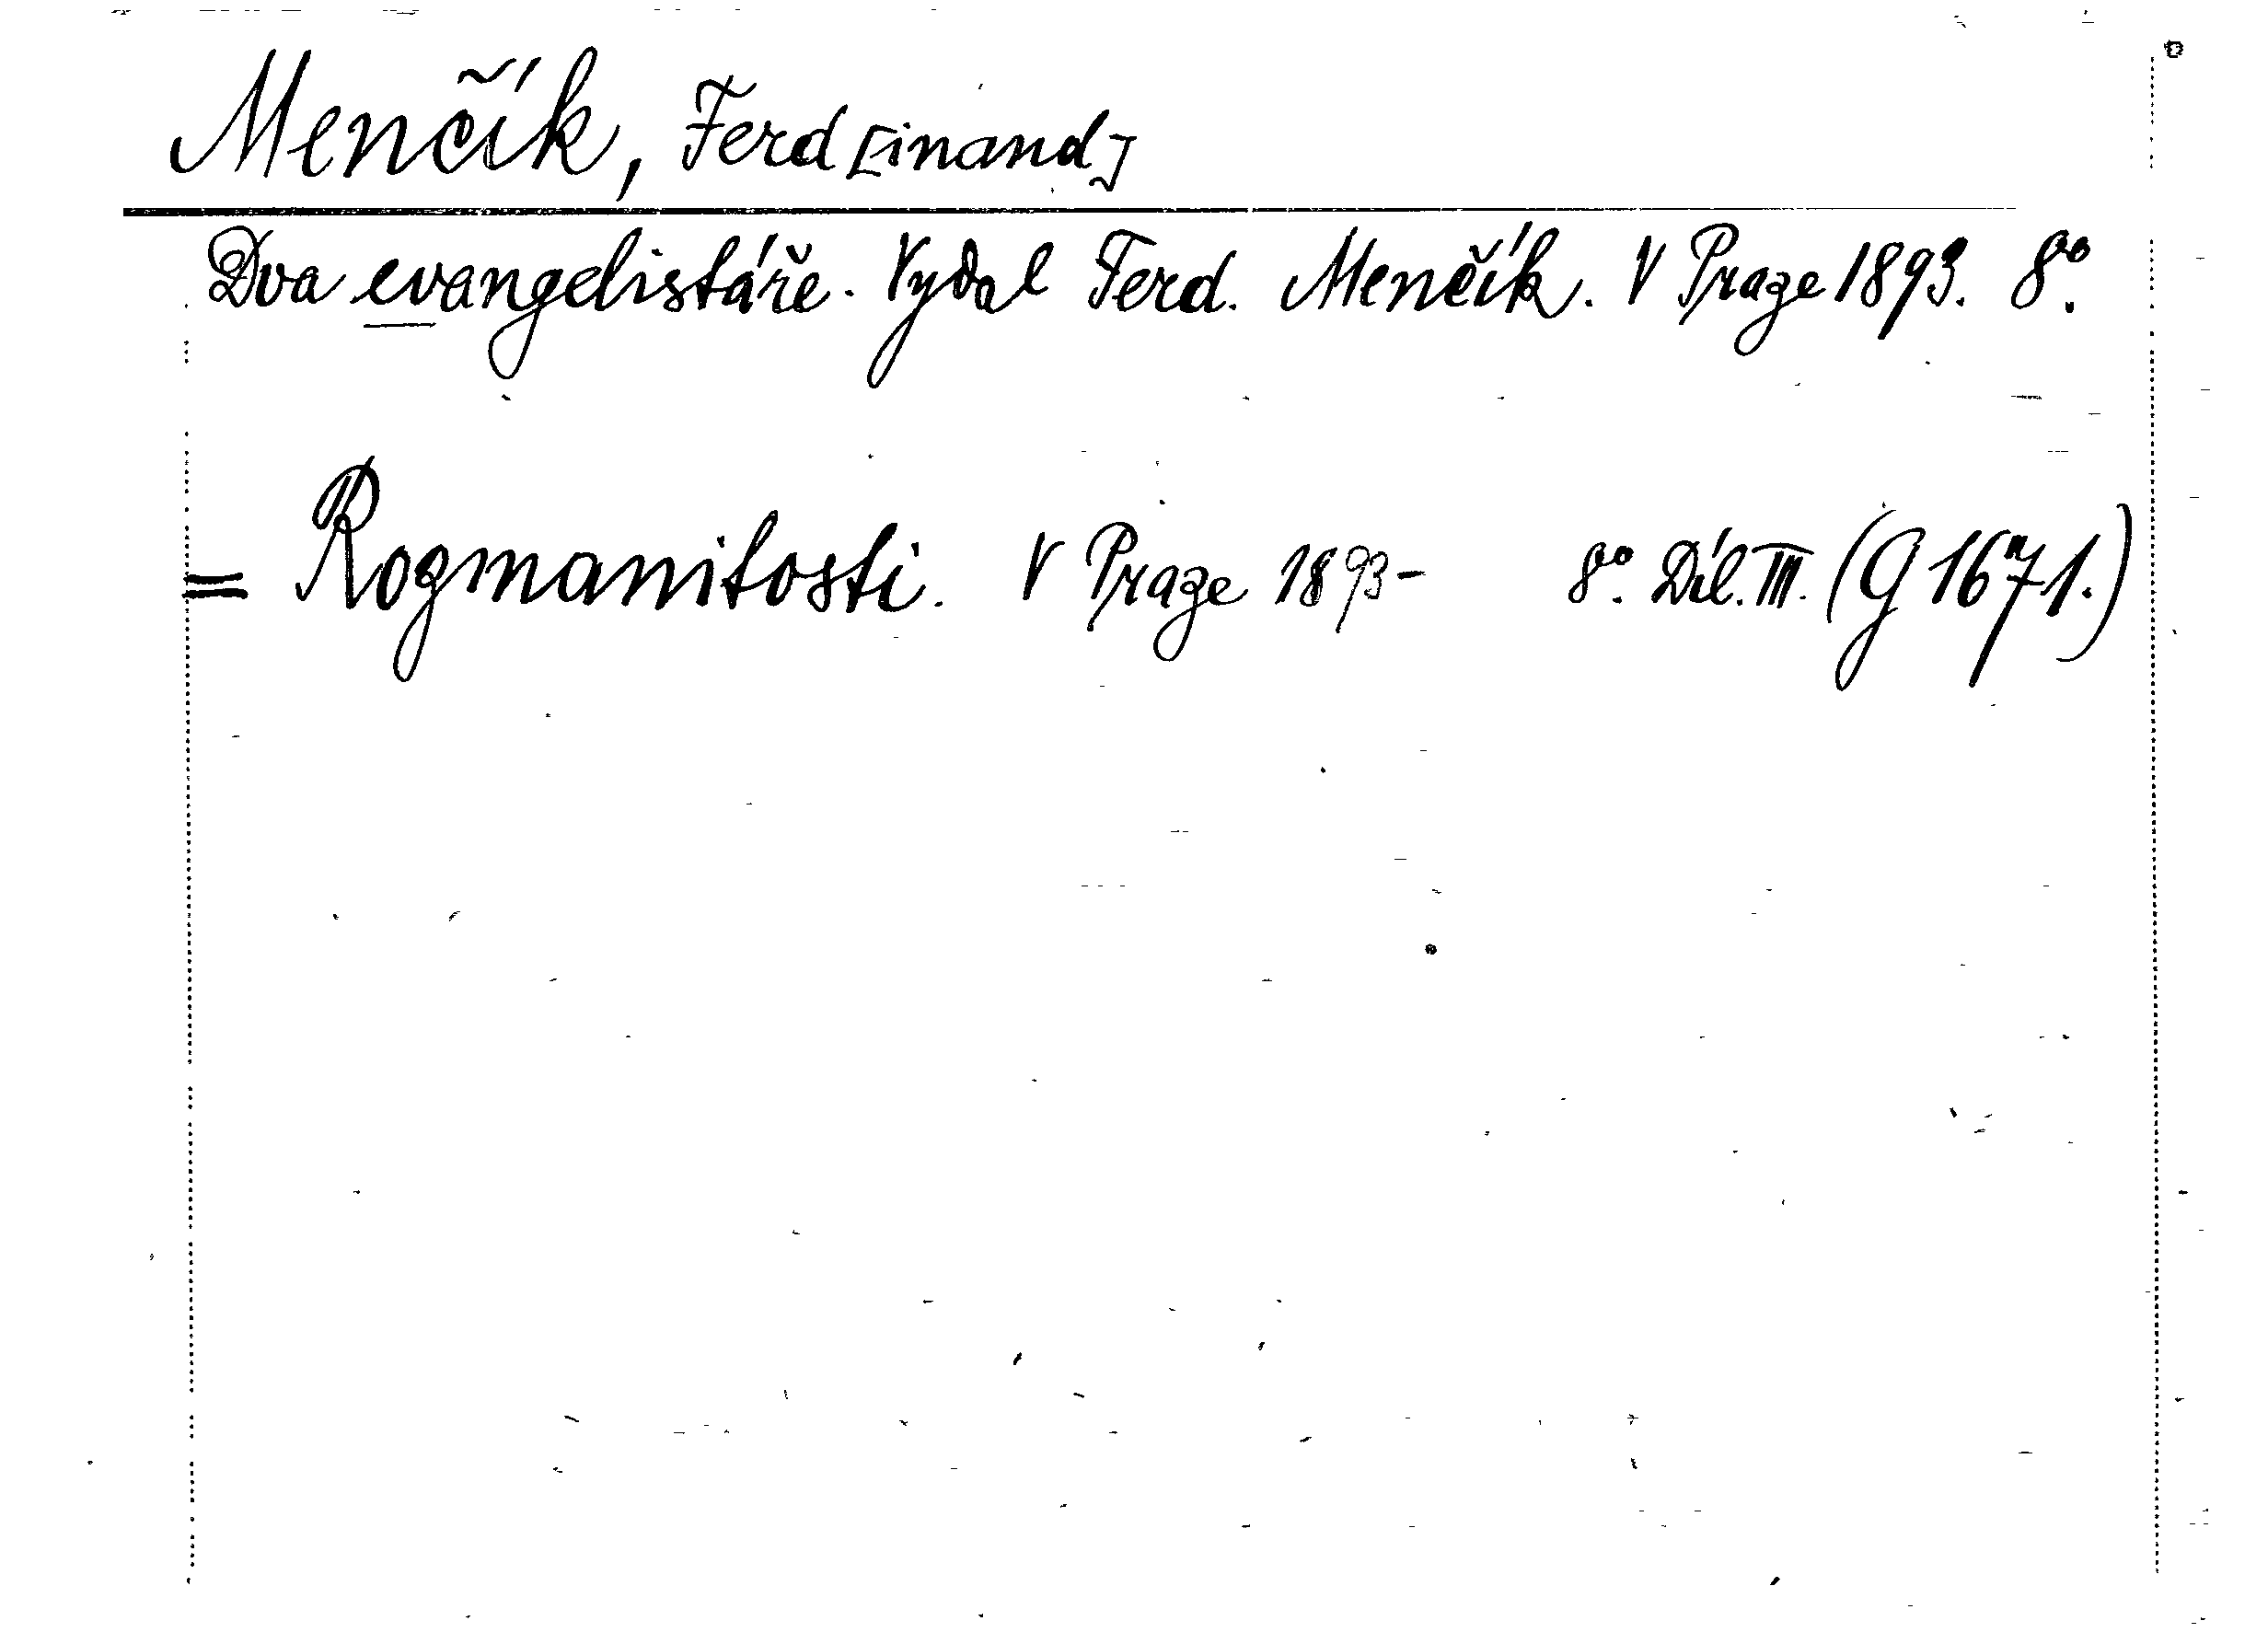 Menčík, Ferd[inand]
Dva evangelistáře. Vydal Ferd. Menčík. V Praze 1893. 8º.
= Rozmanitosti. V Praze 1893- 8º. Díl. III. (G 1671.)